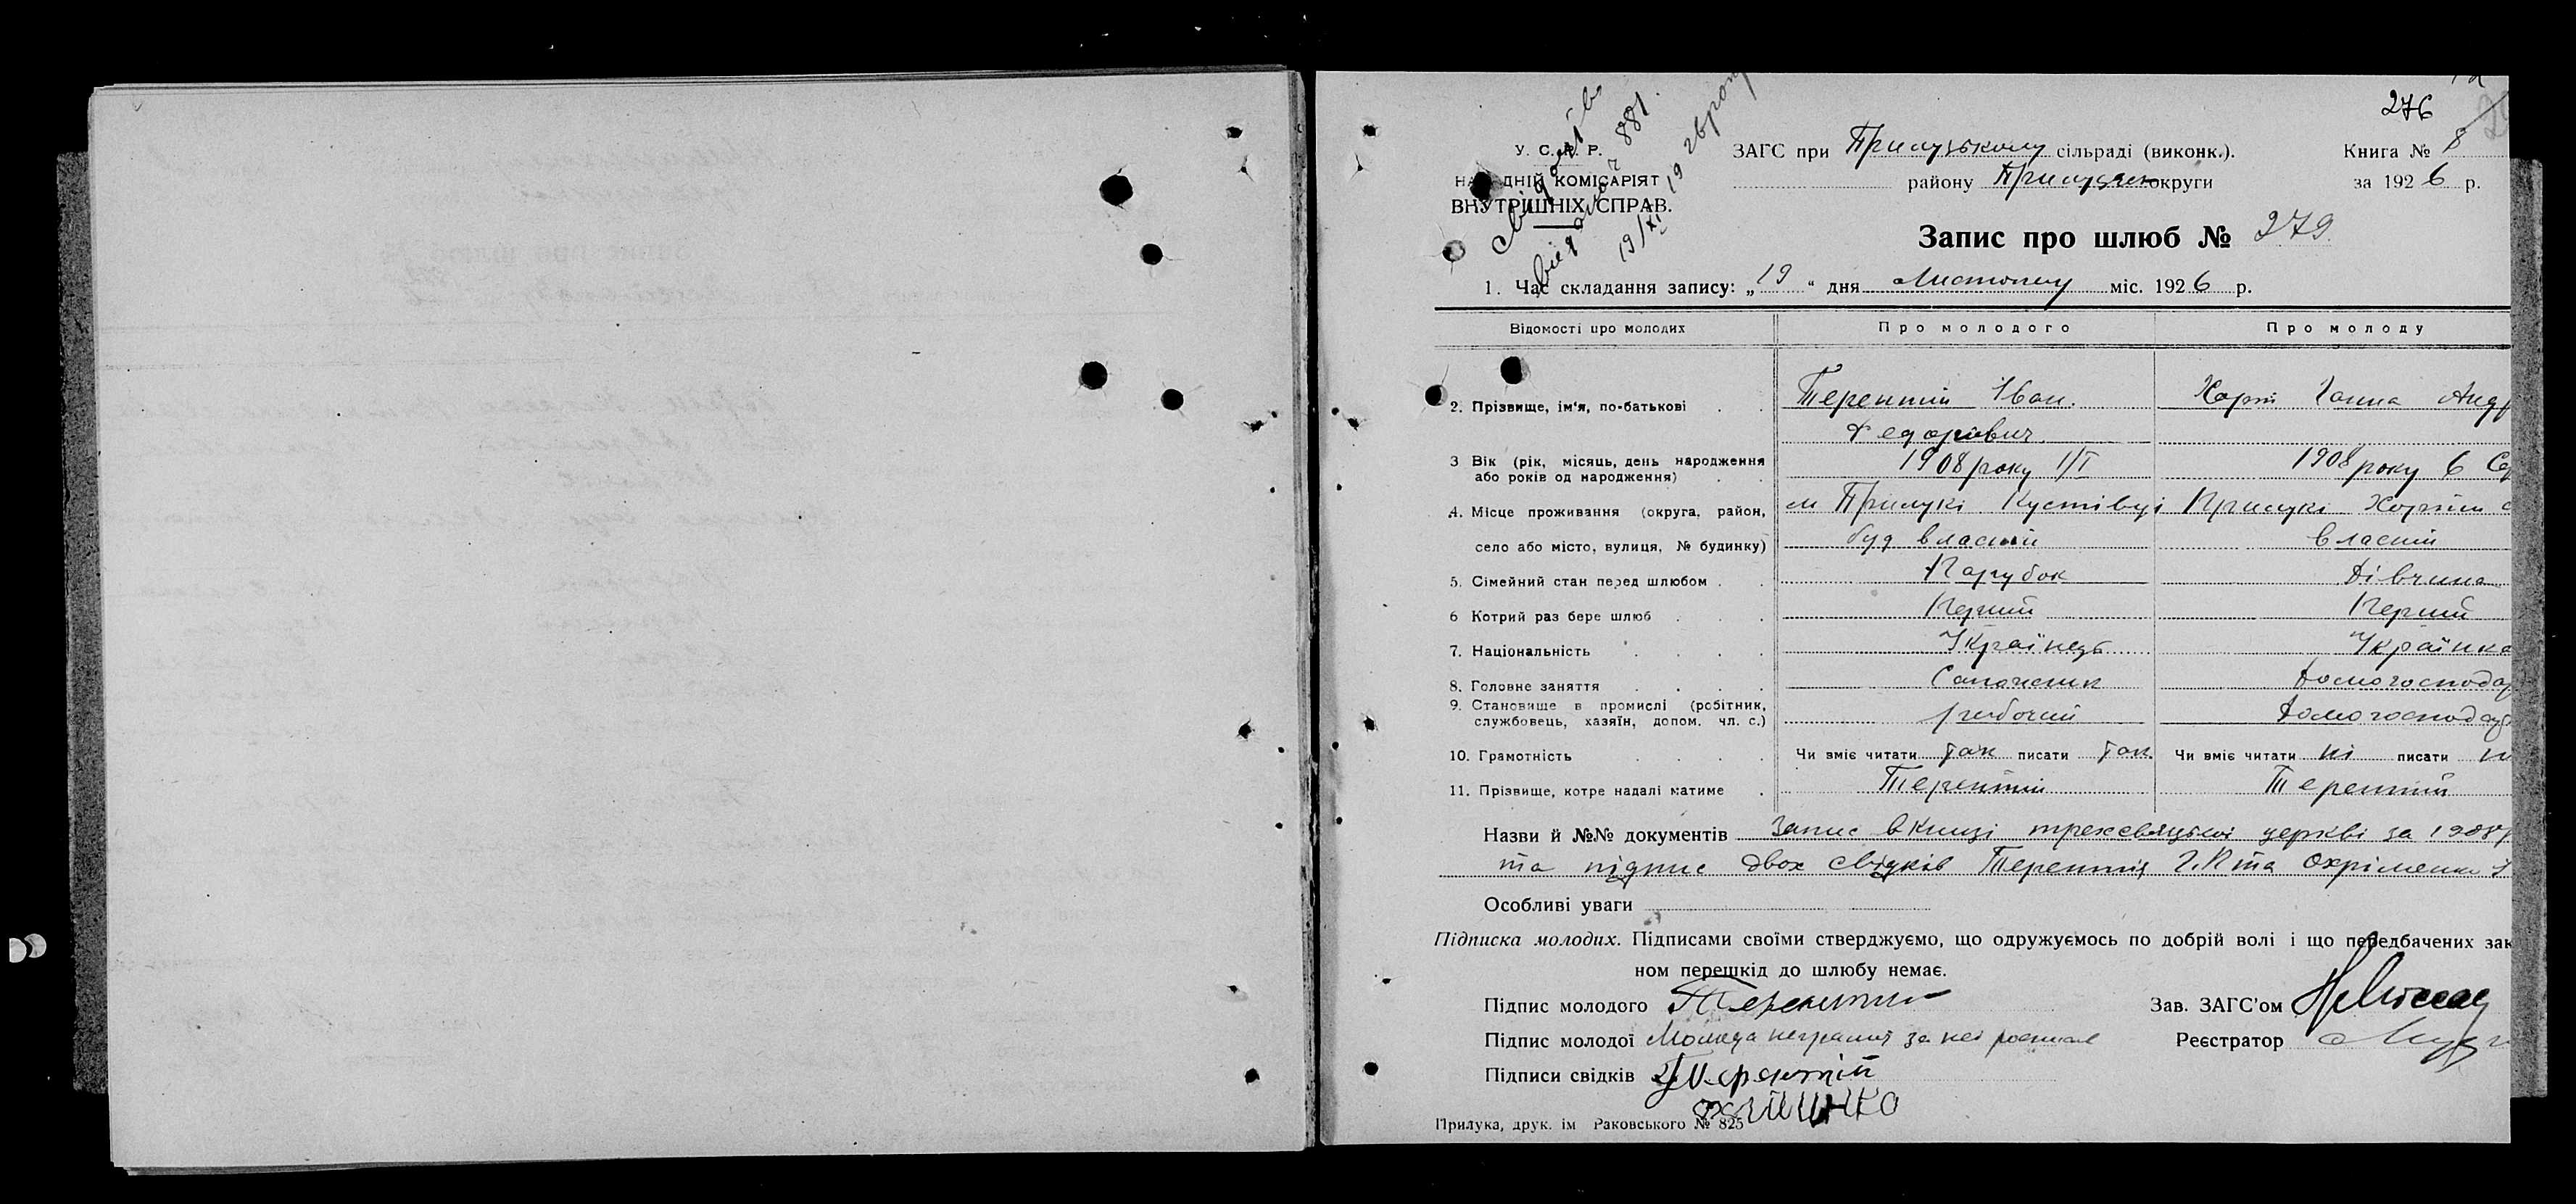 276
У. С. Р. Р.
НАРОДНІЙ КОМІСАРІЯТ
ВНУТРІШНІХ СПРАВ.
881.
19/XI
ЗАГС при Прилуцькому сільраді (виконк.).
району Прилуцьк округи
Книга № 8
за 1926 р.
Запис про шлюб № 279
1. Час складання запису: „19“ дня Листопаду міс. 1926 р.
Відомості про молодих Про молодого Про молоду
2. Прізвище, ім'я, по-батькові Терентій Іван. Харт Ганна Андр
Федорович
3 Вік (рік, місяць, день народження 1908 року 1/I 1908 року 6 Се
або років од народження)
4. Місце проживання (округа, район, м Прилукі Кустівці Прилукі
село або місто, вулиця, № будинку) буд власній власній
5. Сімейний стан перед шлюбом Парубок Дівчина
6 Котрий раз бере шлюб Перший Перший
7. Національність Українець Українка
8. Головне заняття Сапожник Домогосподар
9. Становище в промислі (робітник, рабочий Домогосподар
службовець, хазяїн, допом. чл. с.)
10. Грамотність Чи вміє читати так писати так Чи вміє читати ні писати ні
11. Прізвище, котре надалі матиме Терентій Терентій
Назви й №№ документів Запис в книзі трехсвяцької церкві за 1908
та підпис двох свідків Терентія Г.П та Охріменка
Особливі уваги
Підписка молодих. Підписами своїми стверджуємо, що одружуємось по добрій волі і що передбачених зак
ном перешкід до шлюбу немає.
Підпис молодого Терентий Зав. ЗАГС'ом
Підпис молодої Молода неграмот за неї росписал Реєстратор
Підписи свідків Терентій
Прилука, друк. ім Раковського № 825